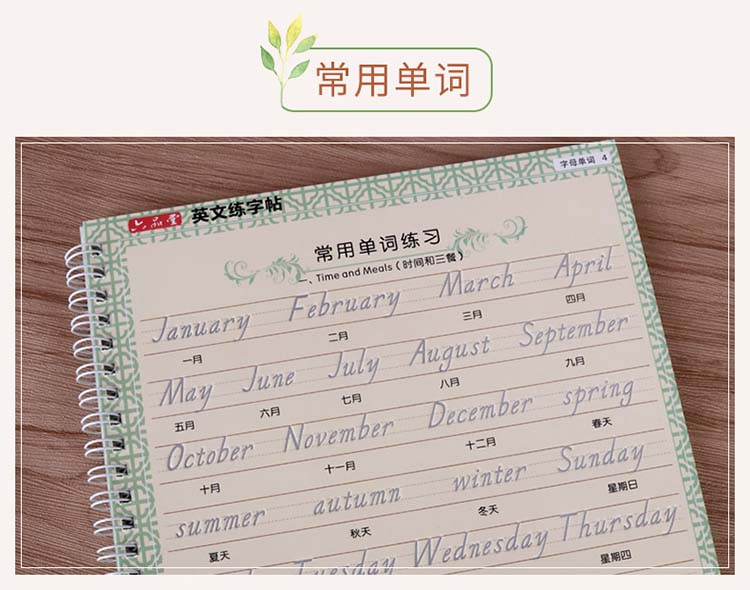 常用单词
字母单词 4
六品堂 英文练字帖
常用单词练习
一、Time and Meals(时间和三餐)
January February March April
一月 二月 三月 四月
May June July August September
五月 六月 七月 八月 九月
October November December spring
十月 十一月 十二月 春天
summer autumn winter Sunday
夏天 秋天 冬天 星期日
Tuesday Wednesday Thursday
星期四